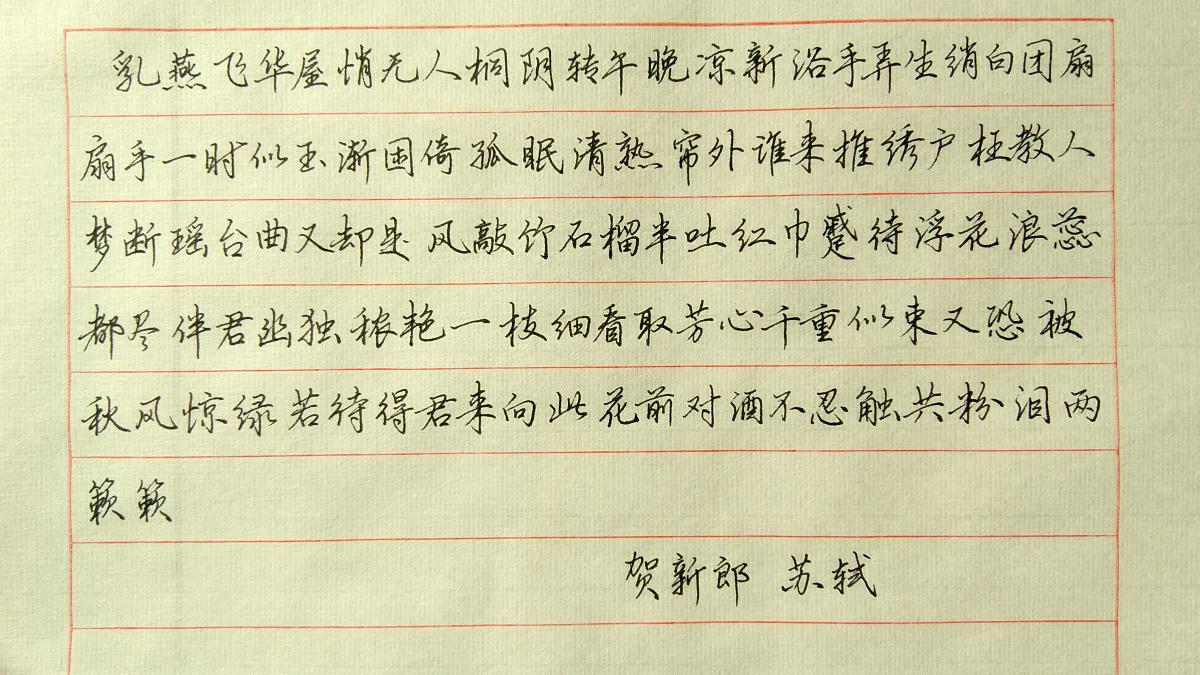 乳燕飞华屋悄无人桐阴转午晚凉新浴手弄生绡白团扇
扇手一时似玉渐困倚孤眠清熟帘外谁来推绣户枉教人
梦断瑶台曲又却是风敲竹石榴半吐红巾蹙待浮花浪蕊
都尽伴君幽独秾艳一枝细看取芳心千重似束又恐被
秋风惊绿若待得君来向此花前对酒不忍触共粉泪两
籁籁
贺新郎 苏轼